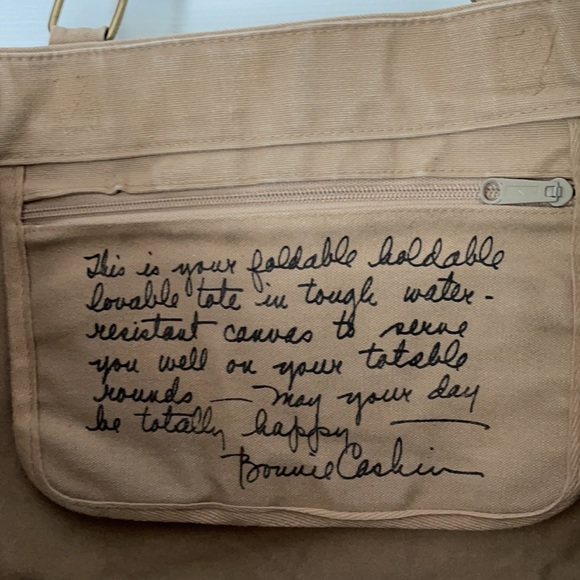 This is your foldable holdable
lovable tote in tough water-
resistant canvas to serve
you well on your totable
rounds — may your day
be totally happy
Bonnie Cashin